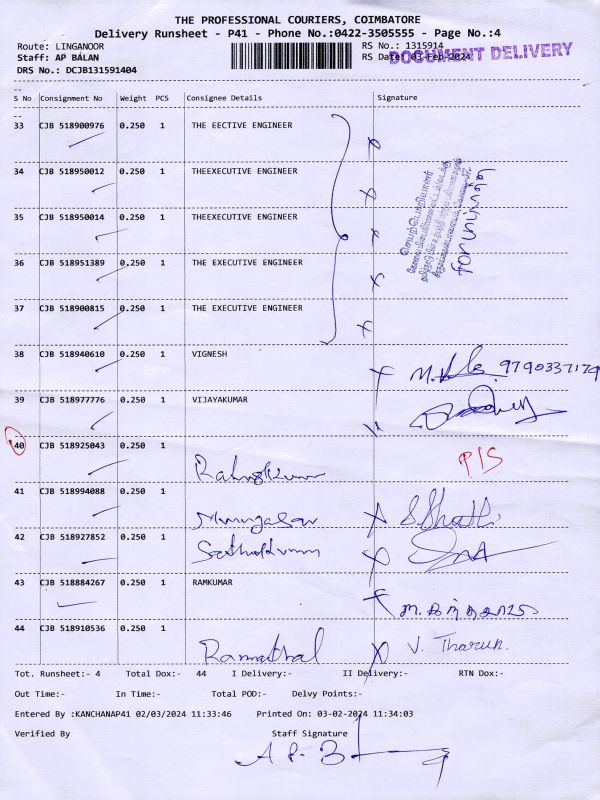 THE PROFESSIONAL COURIERS, COIMBATORE
Delivery Runsheet - P41 - Phone No.:0422-3505555 - Page No.:4
Route: LINGANOOR RS No.: 1315914
Staff: AP BALAN RS Date: 03-Feb-2024 DOCUMENT DELIVERY
DRS No.: DCJB131591404
S No Consignment No Weight PCS Consignee Details Signature
33 CJB 518900976 0.250 1 THE EECTIVE ENGINEER
34 CJB 518950012 0.250 1 THEEXECUTIVE ENGINEER
35 CJB 518950014 0.250 1 THEEXECUTIVE ENGINEER
36 CJB 518951389 0.250 1 THE EXECUTIVE ENGINEER
37 CJB 518900815 0.250 1 THE EXECUTIVE ENGINEER
38 CJB 518940610 0.250 1 VIGNESH 9790337179
39 CJB 518977776 0.250 1 VIJAYAKUMAR
40 CJB 518925043 0.250 1 P/S
41 CJB 518994088 0.250 1
42 CJB 518927852 0.250 1
43 CJB 518884267 0.250 1 RAMKUMAR
44 CJB 518910536 0.250 1 V. Tharun.
Tot. Runsheet:- 4 Total Dox:- 44 I Delivery:- II Delivery:- RTN Dox:-
Out Time:- In Time:- Total POD:- Delvy Points:-
Entered By :KANCHANAP41 02/03/2024 11:33:46 Printed On: 03-02-2024 11:34:03
Verified By Staff Signature